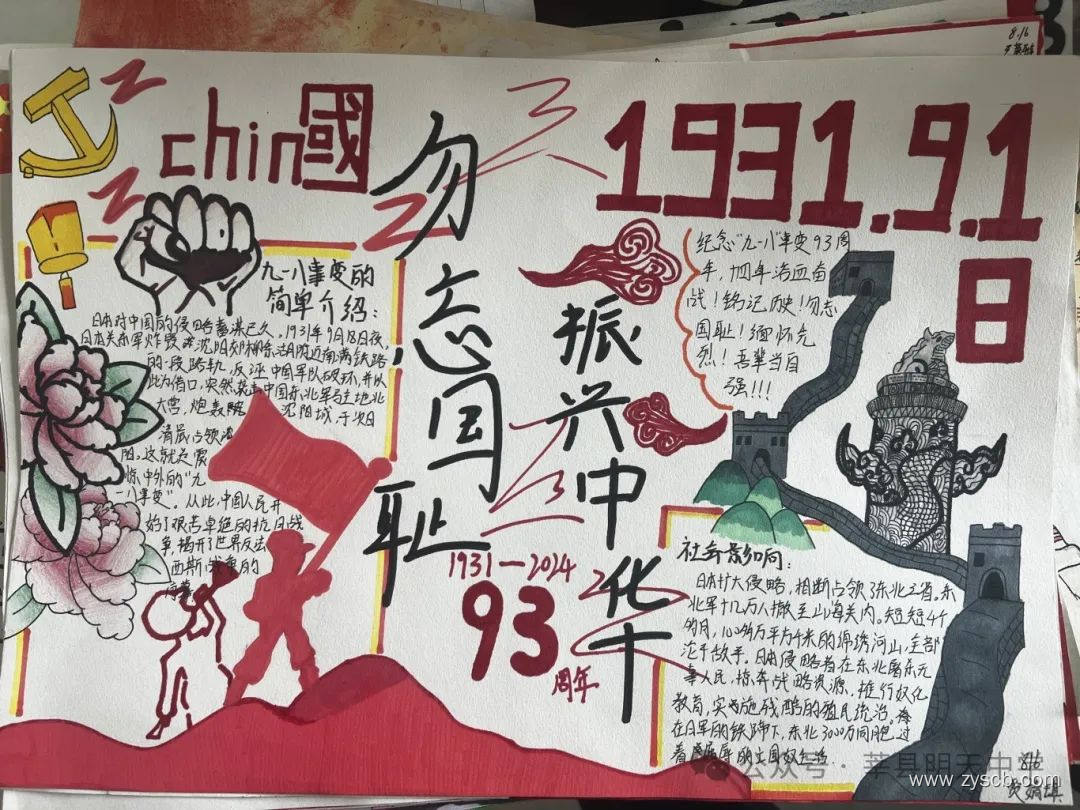 chin國
勿忘国耻
振兴中华
1931.9.18
九一八事变的
简单介绍：
日本对中国的侵略蓄谋已久，1931年9月18日夜，
日本关东军炸毁沈阳郊柳条湖附近南满铁路
的一段路轨，反诬中国军队破坏，并以
此为借口，突然袭击中国东北军驻地北
大营，炮轰沈阳城，于次日
清晨占领沈
阳，这就是震
惊中外的“九
一八事变”。从此，中国人民开
始了艰苦卓绝的抗日战
争，揭开了世界反法
西斯战争的
序幕
1931—2024
93
周年
纪念“九一八”事变93周
年，十四年浴血奋
战！铭记历史！勿忘
国耻！缅怀先
烈！吾辈当自
强！！！
社会影响：
日本扩大侵略，相断占领东北三省。东
北军十几万人撤至山海关内。短短4个
多月，100多万平方千米的锦绣河山，全部
沦于敌手。日本侵略者在东北屠杀无
辜人民，掠夺战略资源，推行奴化
教育，实施残酷的殖民统治。
在日军的铁蹄下，东北3000万同胞，过
着屈辱的亡国奴生活
8.16
8.16
公众号·莘县明天中学
www.zyscb.com